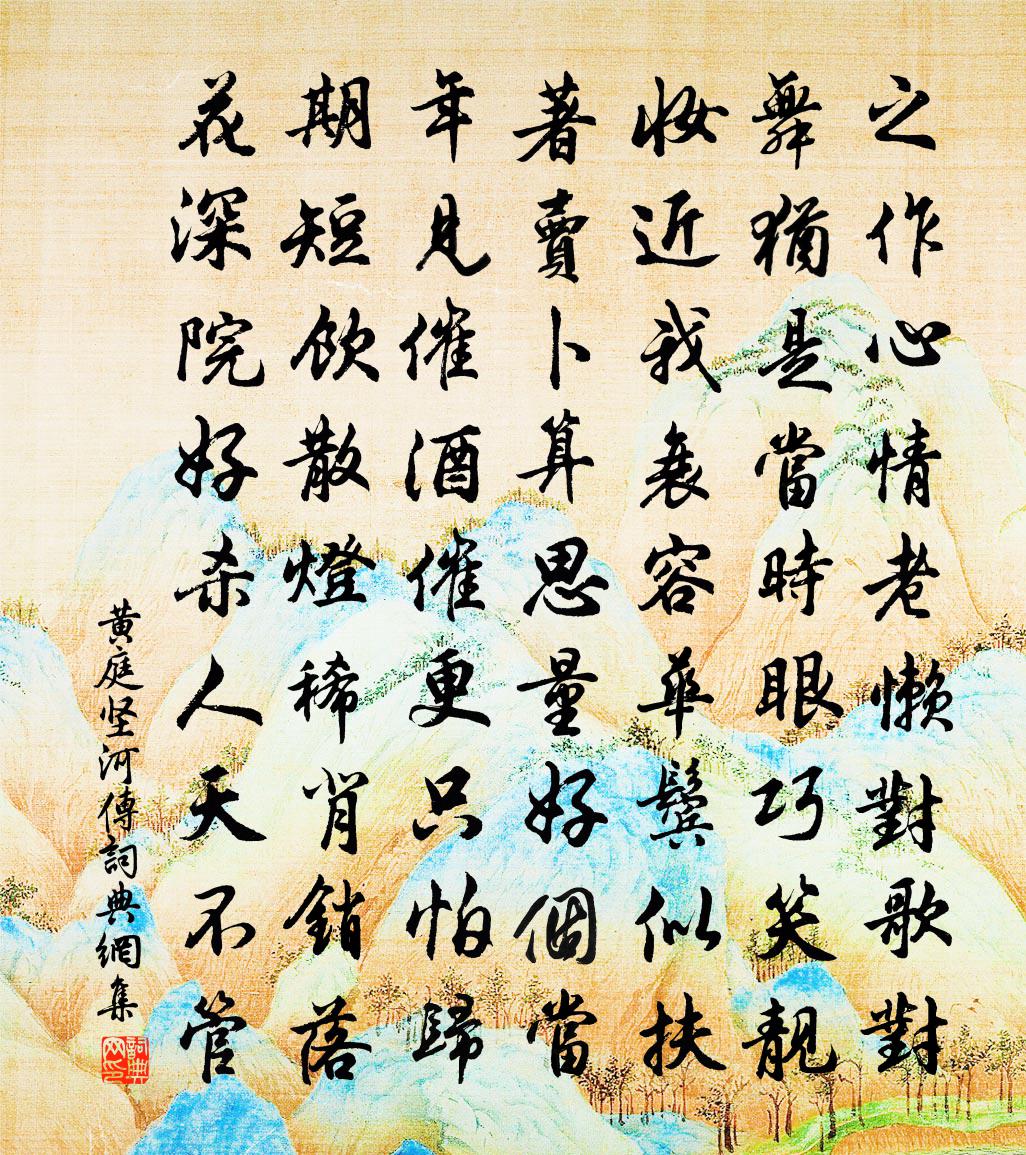 之作心情老懶對歌對
舞猶是當時眼巧笑靚
妝近我衰容華鬢似扶
著賣卜算思量好個當
年見催酒催更只怕歸
期短飲散燈稀肖銷落
花深院好杀人天不管
黄庭坚河傳詞典網集
詞典